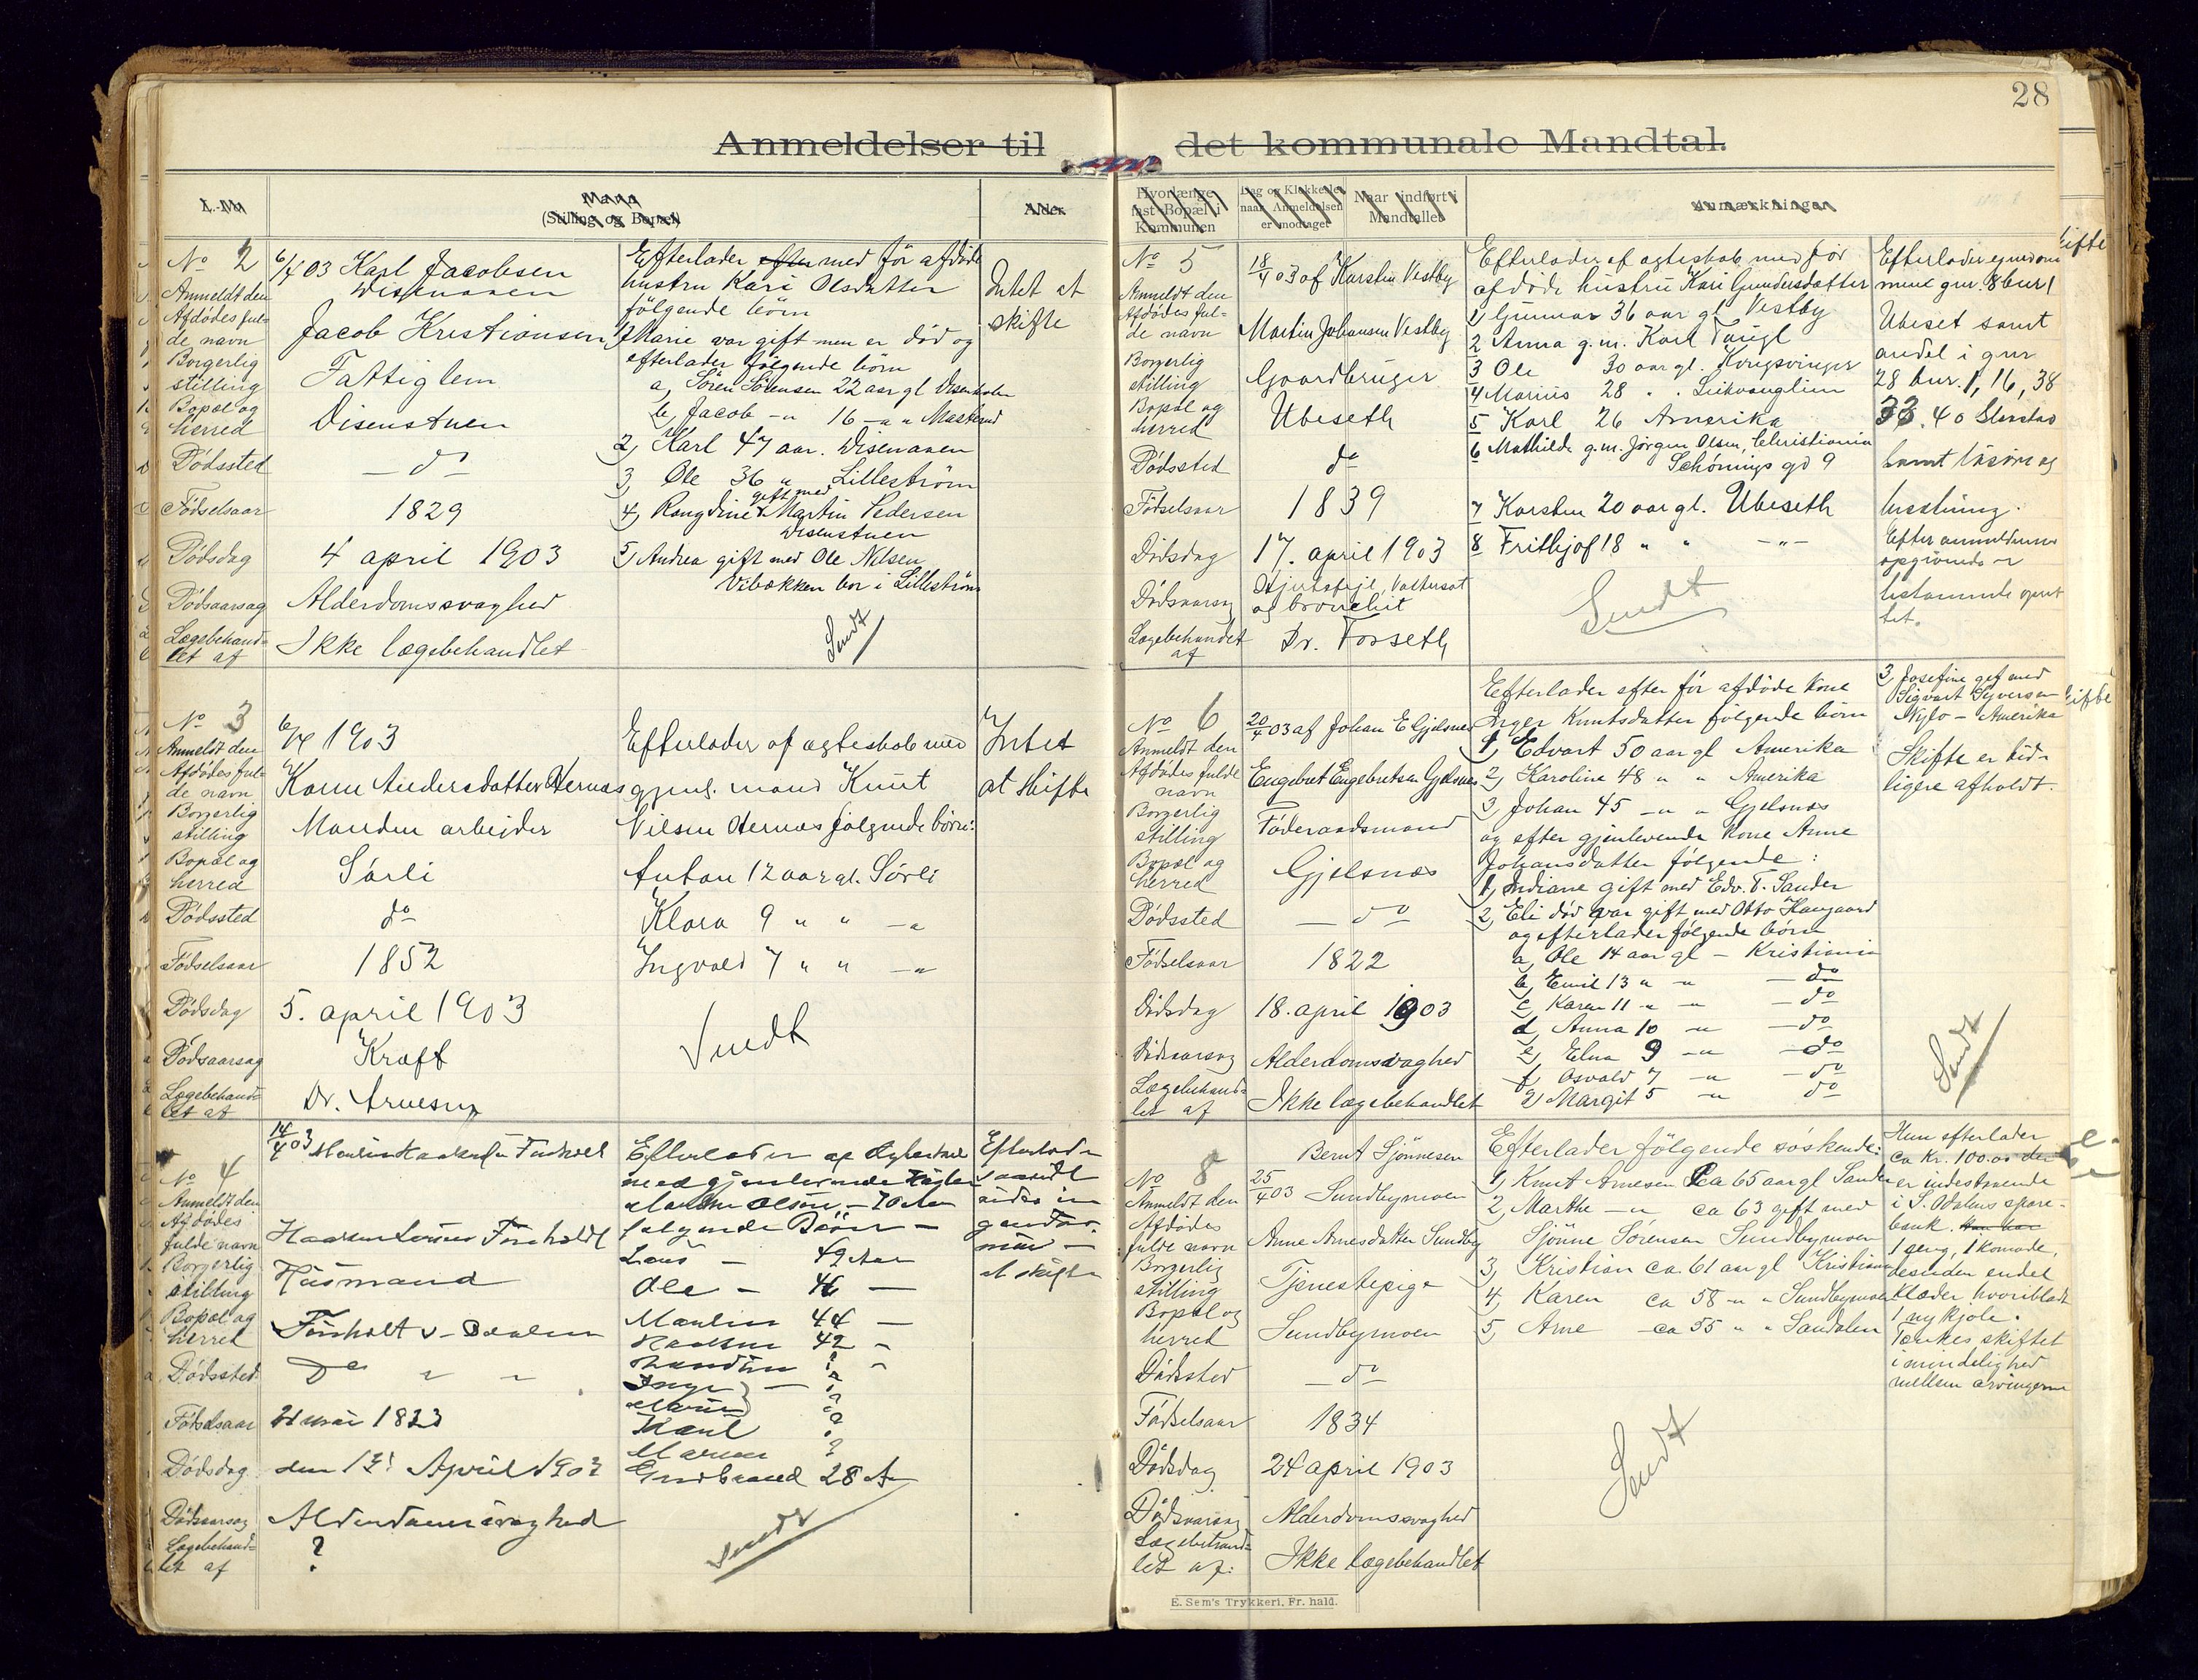 28
Anmeldelser til det kommunale Mandtal.
L.-No
Mand
(Stilling og Bopæl)
Alder.
Hvorlænge
fast Bopæl i
Kommunen
Dag og Klokkeslet
naar Anmeldelsen
er modtaget
Naar indført i
Mandtallet
Anmærkninger
No 2
6/4 03 Karl Jacobsen
Disenaaen
Anmeldt den
Afdødes ful-
de navn
Jacob Kristiansen
Borgerlig
stilling
Fattiglem
Bopæl og
herred
Disenstuen
Dødssted
— do
Fødselsaar
1829
Dødsdag
4 april 1903
Dødsaarsag
Alderdomssvaghed
Lægebehand-
let af
Ikke lægebehandlet
Efterlader efter med før afdøde
hustru Kari Olsdatter
følgende børn
1, Marie var gift men er død og
efterlader følgende børn
a, Søren Sørensen 22 aar gl
b, Jacob -"- 16 -" "
2, Karl 47 aar. Disenaaen
3, Ole 36 " Lillestrøm
4, gift med Martin Pedersen
Disenstuen
5, Andrea gift med Ole Nilsen
Vibakken bor i Lillestrøm
Sendt
Intet at
skifte
No 3
6/4 1903
Anmeldt den
Afdødes ful-
de navn
Karen Andersdatter Hernæs
Borgerlig
stilling
Manden arbejder
Bopæl og
herred
Sørli
Dødssted
do
Fødselsaar
1852
Dødsdag
5. april 1903
Dødsaarsag
Kræft
Lægebehand-
let af
Dr. Arnesen
Efterlader af ægteskab med
gjenl. mand Knut
Nilsen Hernæs følgende børn:
Anton 12 aar gl. Sørli
Klara 9 " " -"
Ingvald 7 " " -"
Sendt
Intet
at skifte
No 4
14/4 03
Anmeldt den
Afdødes
fulde navn
Borgerlig
stilling
Husmand
Bopæl og
herred
Dødssted
Do " "
Fødselsaar
21 mai 1823
Dødsdag
den 13 April 1903
Dødsaarsag
Alderdomssvaghed
Lægebehand-
let af
?
Efterlader af Ægteskab
med gjenlevende
Olsen - 70 Aar
følgende Børn -
Lars - 49 Aar
Ole - 46 —
Maulin 44 —
Haaken 42 -
? -
Inge — ?
?
Karl ?
Maren ?
Gudbrand 28 A
Sendt
at skifte
No 5
18/4 03 af Karsten Vestby
Anmeldt den
Afdødes ful-
de navn
Martin Johansen Vestby
Borgerlig
stilling
Gaardbruger
Bopæl og
herred
Ubeseth
Dødssted
do
Fødselsaar
1839
Dødsdag
17. april 1903
Dødsaarsag
Hjertefejl, Vattersot
og bronchit
Lægebehandlet
af
Dr. Fosseth
Efterlader af ægteskab med før
afdøde hustru Kari Gundersdatter
1, Gunnar 36 aar gl Vestby
2 Anna g.m. Karl
3 Ole 30 aar gl. Kongsvinger
4 Marius 28 " "
5 Karl 26 Amerika
6 Mathilde g.m. Jørgen Olsen, Christiania
Schønings gd 9
7 Karsten 20 aar gl. Ubeseth
8 Frithjof 18 " " -"-
Sendt
Efterlader ejendom
men gnr. 8 bnr 1
Ubeset samt
andel i gnr
28 bnr. 1, 16, 38
33. 40 Slorstad
samt løsøre og
besætning.
Efter anmelderens
opgivende er
bestemmende
No 6
20/4 03 af Johan E Gjelsnæs
Anmeldt den
Afdødes fulde
navn
Engebret Engebretsen Gjelsnæs
Borgerlig
stilling
Føderaadsmand
Bopæl og
herred
Gjelsnæs
Dødssted
— do
Fødselsaar
1822
Dødsdag
18. april 1903
Dødsaarsag
Alderdomsvaghed
Lægebehand-
let af
Ikke lægebehandlet
Efterlader efter før afdøde kone
Inger Knutsdatter følgende børn
1, Edvart 50 aar gl Amerika
2, Karoline 48 " " Amerika
3, Johan 45 -" " Gjelsnæs
og efter gjenlevende kone Anne
Johansdatter følgende:
1, Indiane gift med Edv. T. Sander
2, Eli død var gift med Otto Haugaard
og efterlader følgende børn
a, Ole 14 aar gl - Kristiania
b, Emil 13 " " — do
c, Karen 11 -" " — do
d, Anna 10 -" — do
e, Elna 9 -" — do
f, Osvald 7 -" — do
g, Margit 5 -" do
3, Josefine gift med
Sigvart Syversen
Nylo - Amerika
Skifte er tid-
ligere afholdt.
Sendt
No 8
25/4 03
Bernt Sjønnesen
Sundbymoen
Anmeldt den
Afdødes
fulde navn
Anne Arnesdatter Sundby
Borgerlig
stilling
Tjenestepige
Bopæl og
herred
Sundbymoen
Dødssted
— do
Fødselsaar
1834
Dødsdag
24 april 1903
Dødsaarsag
Alderdomssvaghed
Lægebehand-
let af:
Ikke lægebehandlet
Efterlader følgende søskende:
1, Knut Arnesen ca 65 aar gl Sander
2, Marthe -" ca 63 gift med
Sjønne Sørensen Sundbymoen
3, Kristian ca. 61 aar gl Kristiania
4, Karen ca 58 -" " Sundbymoen
5, Arne ca 55 " " Sandalen
Sendt
Hun efterlader
ca Kr. 100.00 der
er indestaaende
i S. Odalens spare-
bank. Hun har
1 seng, 1 komode,
desuden endel
klæder hvoriblandt
1 ny kjole.
Tænkes skiftet
i mindelighed
mellem arvingerne
E. Sem's Trykkeri, Fr. hald.